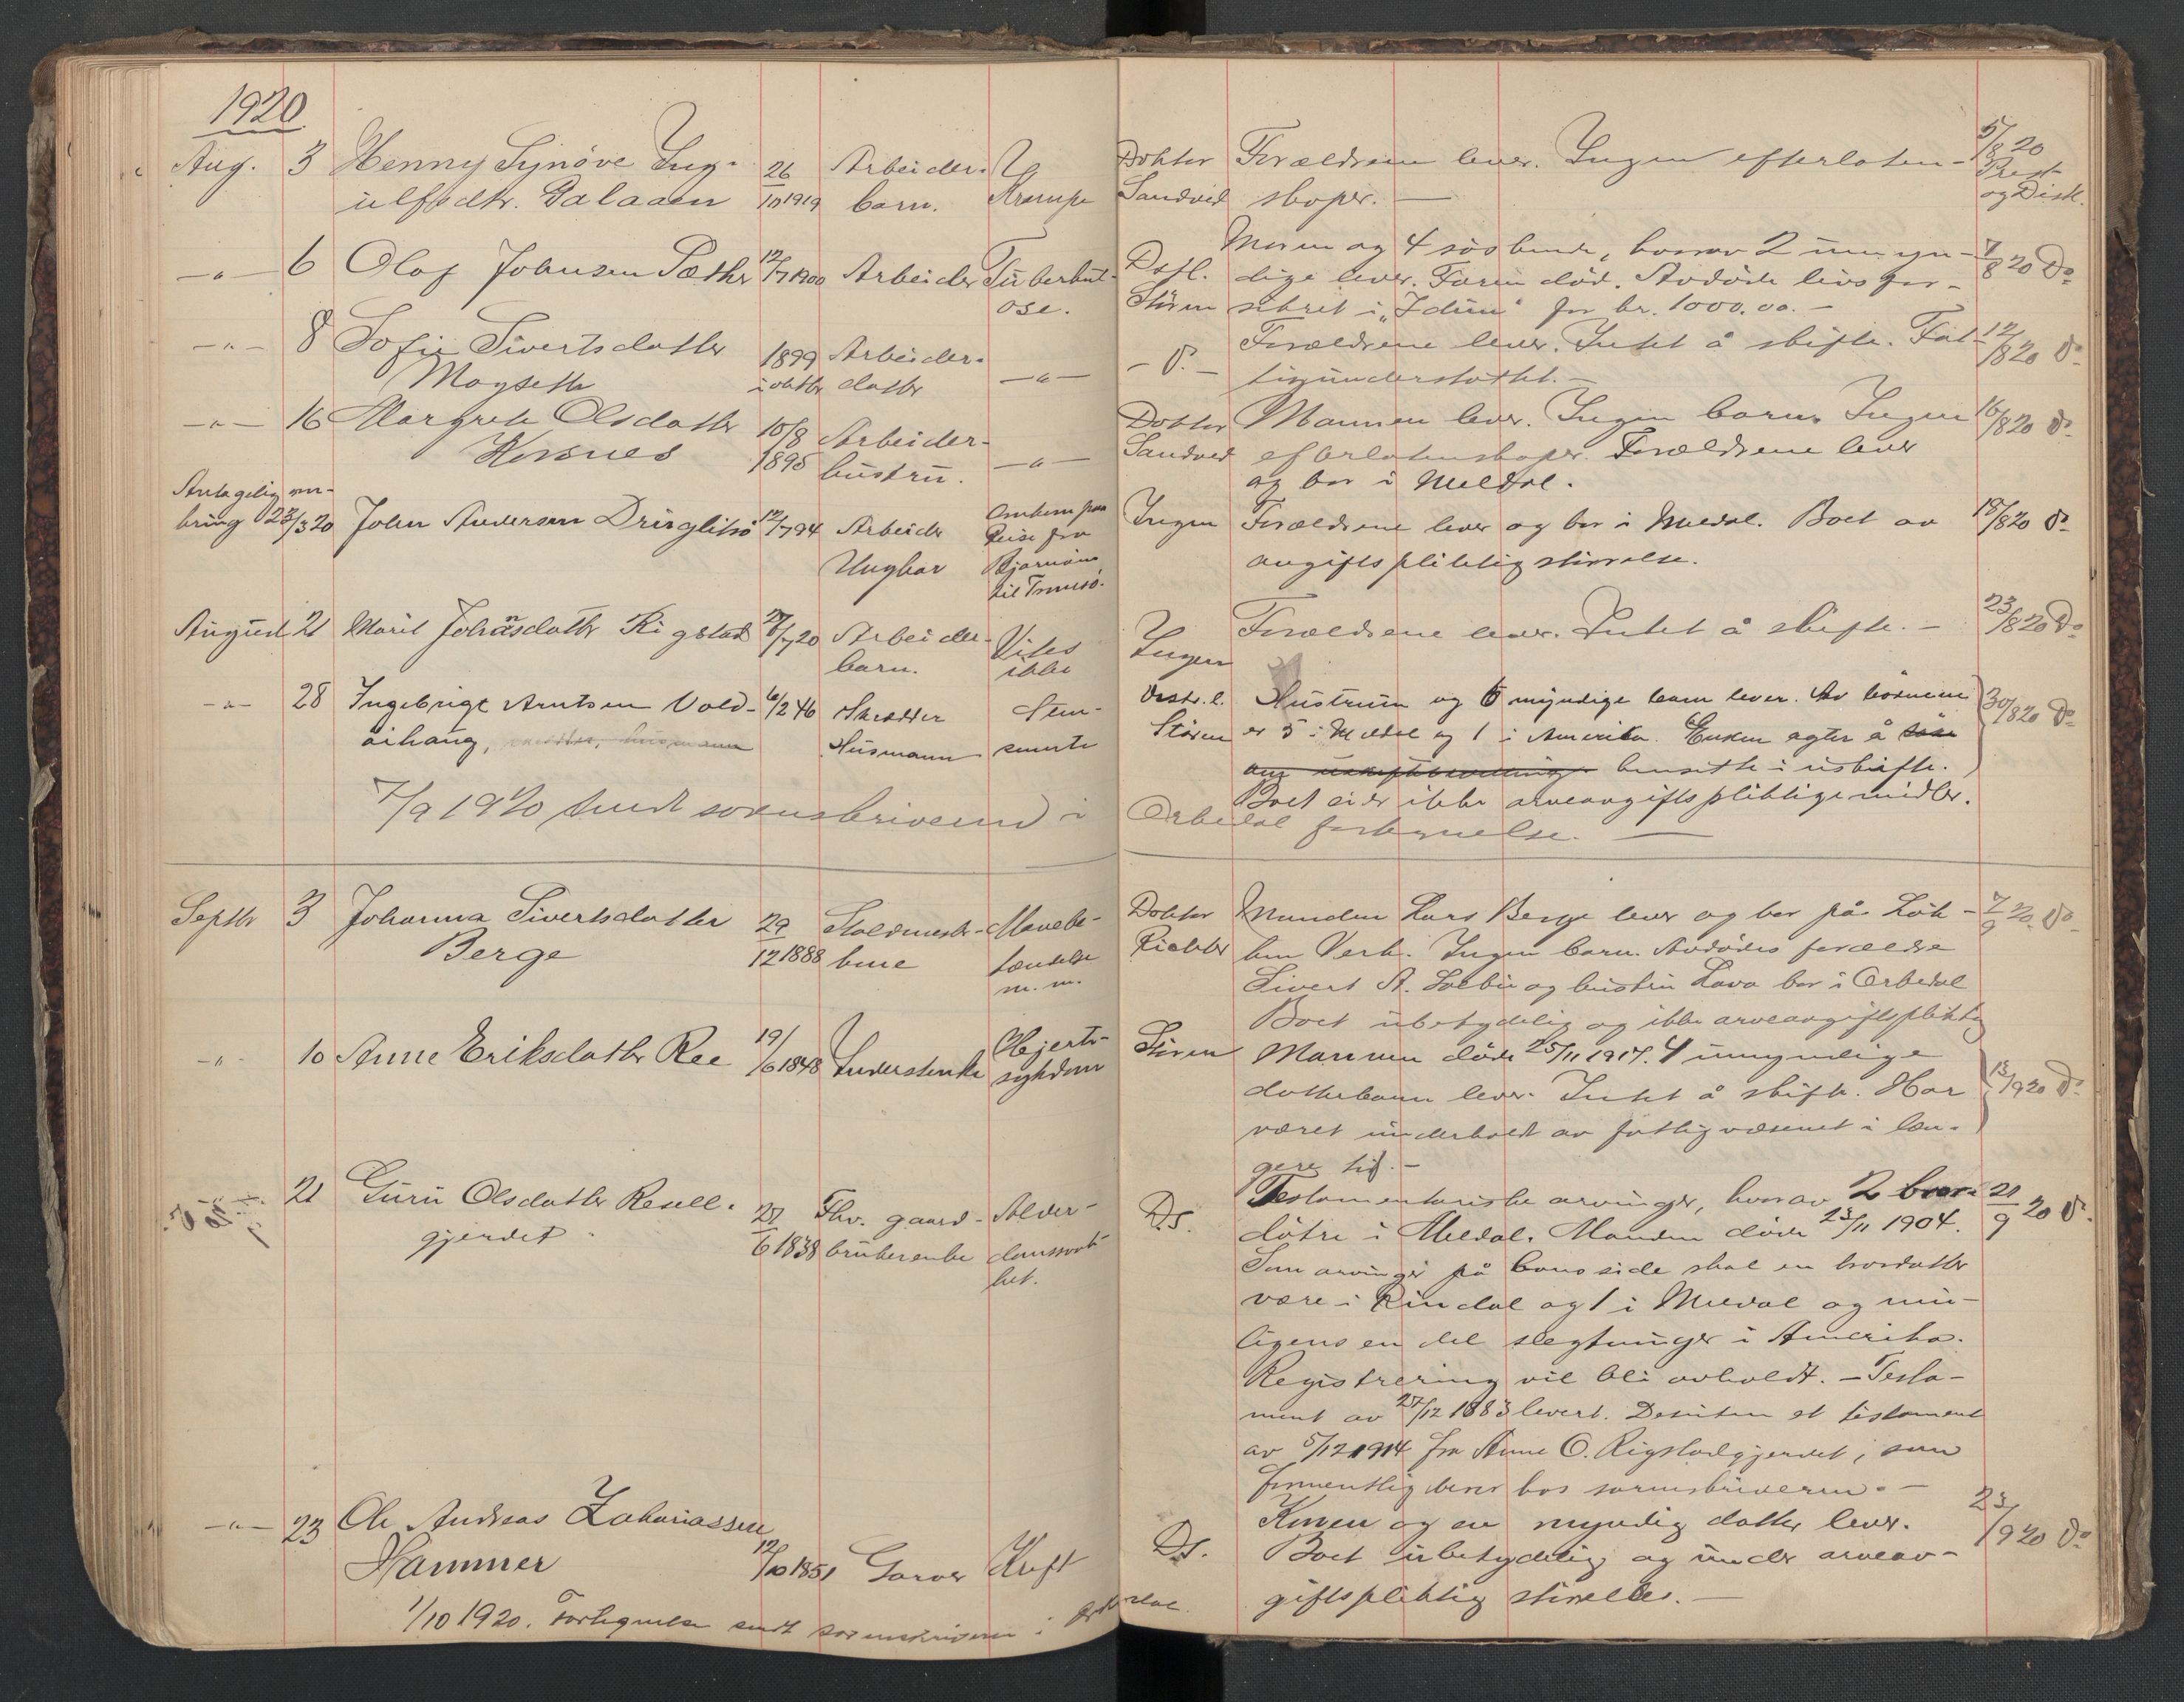 1920
Aug. 3 Henny Synöve Ing-
ulfsdtr. Dalaaen
26/10 1919
Arbeider-
barn.
Krampe
Doktor
Sandvid
Forældrene lever. Ingen efterlaten-
skaper. —
5/8 20
Prest
og Disk.
—"— 6 Olaf Johnsen Sæther
12/7 1900
Arbeider
Tuberkul-
ose.
Dstl.
Støren
Moren og 4 søskende, hvorav 2 umyn-
dige lever. Faren død. Avdöde livsfor-
sikret i "Idun" for kr. 1000.00. —
7/8 20 Do
—"— 8 Sofie Sivertsdatter
Mogseth
1899
i oktbr
Arbeider-
datter
—"—
— D. —
Forældrene lever. Intet å skifte. Fat-
tigunderstøttet. —
12/8 20 Do
—"— 16 Margrete Olsdatter
Hersnes
10/8
1895
Arbeider-
hustru.
—"—
Doktor
Sandvid
Mannen lever. Ingen barn. Ingen
efterlatenskaper. Forældrene lever
og bor i Meldal.
16/8 20 Do
Antagelig om-
kring 23/3 20 John Andersen
12/7 94
Arbeider
Ungkar
Omkom paa
Reise fra
Bjørnøen
til Tromsö.
Ingen
Forældrene lever og bor i Meldal. Boet av
avgiftspliktig størrelse.
18/8 20 Do
August 21 Marit Johansdatter Rigstad
/7 20
Arbeider-
barn.
Vites
ikke
Ingen
Forældrene lever. Intet å skifte. —
23/8 20 Do
—"— 28 Ingebrigt Arntsen Vold-
öihaug,
6/2 46
Skredder
Husmann
Doktor
Støren
Hustruen og 6 myndige barn lever. Av börnene
er 5 i Meldal og 1 i Amerika. Enken agter å
hensitte i uskifte.
Boet eier ikke arveavgiftspliktige midler.
30/8 20 Do
7/9 1920 sendt sorenskriveren i Orkedal fortegnelse. —
Septbr 3 Johanna Sivertsdatter
Berge
29/12 1888
kone
Mavebe-
tændelse
m. m.
Doktor
Richter
Manden Lars Berge lever og bor på Løk-
ken Verk. Ingen barn. Avdödes forældre
Sivert A. Solbu og hustru Lava bor i Orkedal
Boet ubetydelig og ikke arveavgiftspliktig
7/9 20. Do
—"— 10 Anne Eriksdatter Ree
19/6 1848
Understøttet
Hjerte-
sykdom
Støren
Mannen döde 25/11 1917. 4 umyndige
datterbarn lever. Intet å skifte. Har
været underholdt av fattigvæsenet i læn-
gere tid. —
13/9 20 Do
21 Guru Olsdatter Resell-
gjerdet
27/6 1838
Fhv. gaard-
brukerenke
Alder-
domssvak-
het.
Ds.
Testamentariske arvinger, hvorav 2 bror-
døtre i Meldal. Manden döde 23/11 1904.
Som arvinger på hans side skal en brordatter
være i Rindal og 1 i Meldal og mu-
ligens en del slegtninger i Amerika.
Registrering vil bli avholdt. — Testa-
ment av 27/12 1883 levert. Desuten et testament
av 5/12 1914 fra Anne O. Rigstadgjerdet, som
formentlig beror hos sorenskriveren. —
21/9 20 D.
—"— 23 Ole Andreas Zakariassen
Hammer
12/10 1851
Garver
Kræft
Ds.
Konen og en myndig datter lever.
Boet ubetydelig og under arveav-
giftspliktig størrelse. —
23/9 20 Do
1/10 1920. Fortegnelse sendt sorenskriveren i Orkedal.